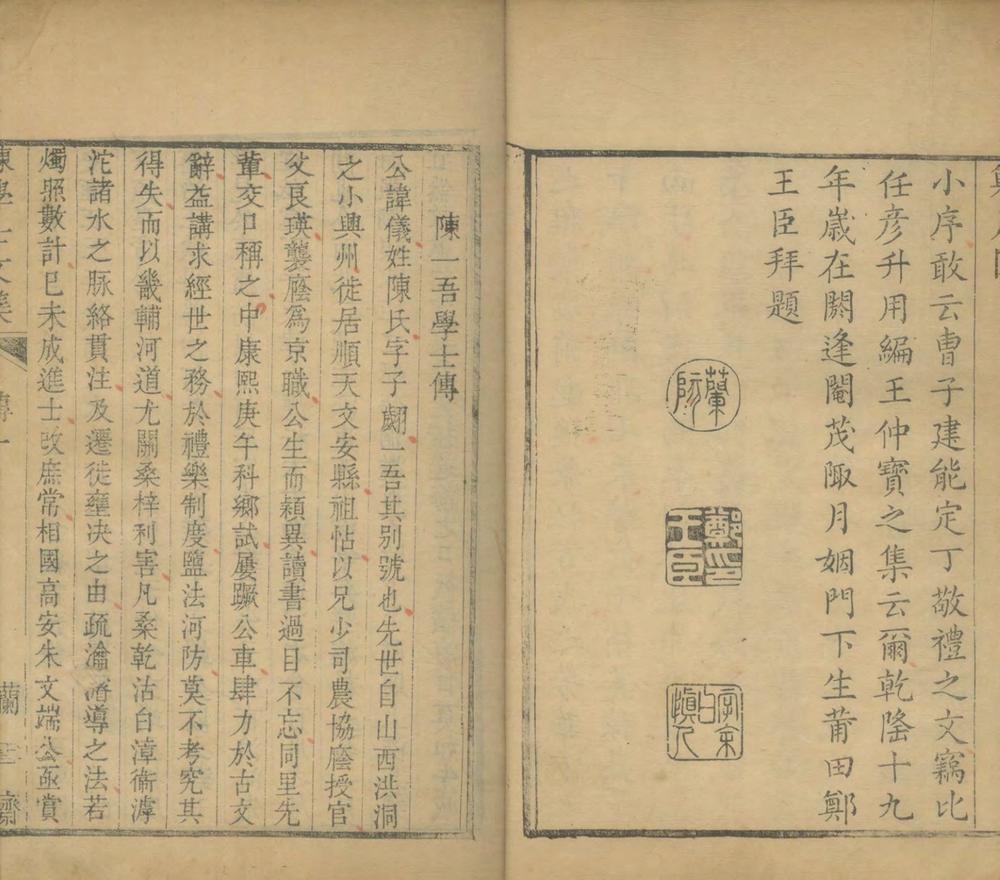 小序敢云曹子建能定丁敬禮之文竊比
任彦升用編王仲寶之集云爾乾隆十九
年歲在閼逢閹茂陬月姻門下生莆田鄭
王臣拜題
蘭
鄭
王臣
字
慎人
陳一吾學士傳
公諱儀姓陳氏字子翽一吾其别號也先世自山西洪洞
之小興州徙居順天文安縣祖怗以兄少司農協廕授官
父艮瑛襲廕爲京職公生而穎異讀書過目不忘同里先
輩交口稱之中康熙庚午科鄉試屢蹶公車肆力於古文
辭益講求經世之務於禮樂制度鹽法河防莫不考究其
得失而以畿輔河道尤關桑梓利害凡桑乾沽白漳衞滹
沱諸水之脉絡貫注及遷徙壅决之由疏瀹濬導之法若
燭照數計已未成進士改庶常相國高安朱文端公亟賞
陳學士文集
傳
一
蘭
齋